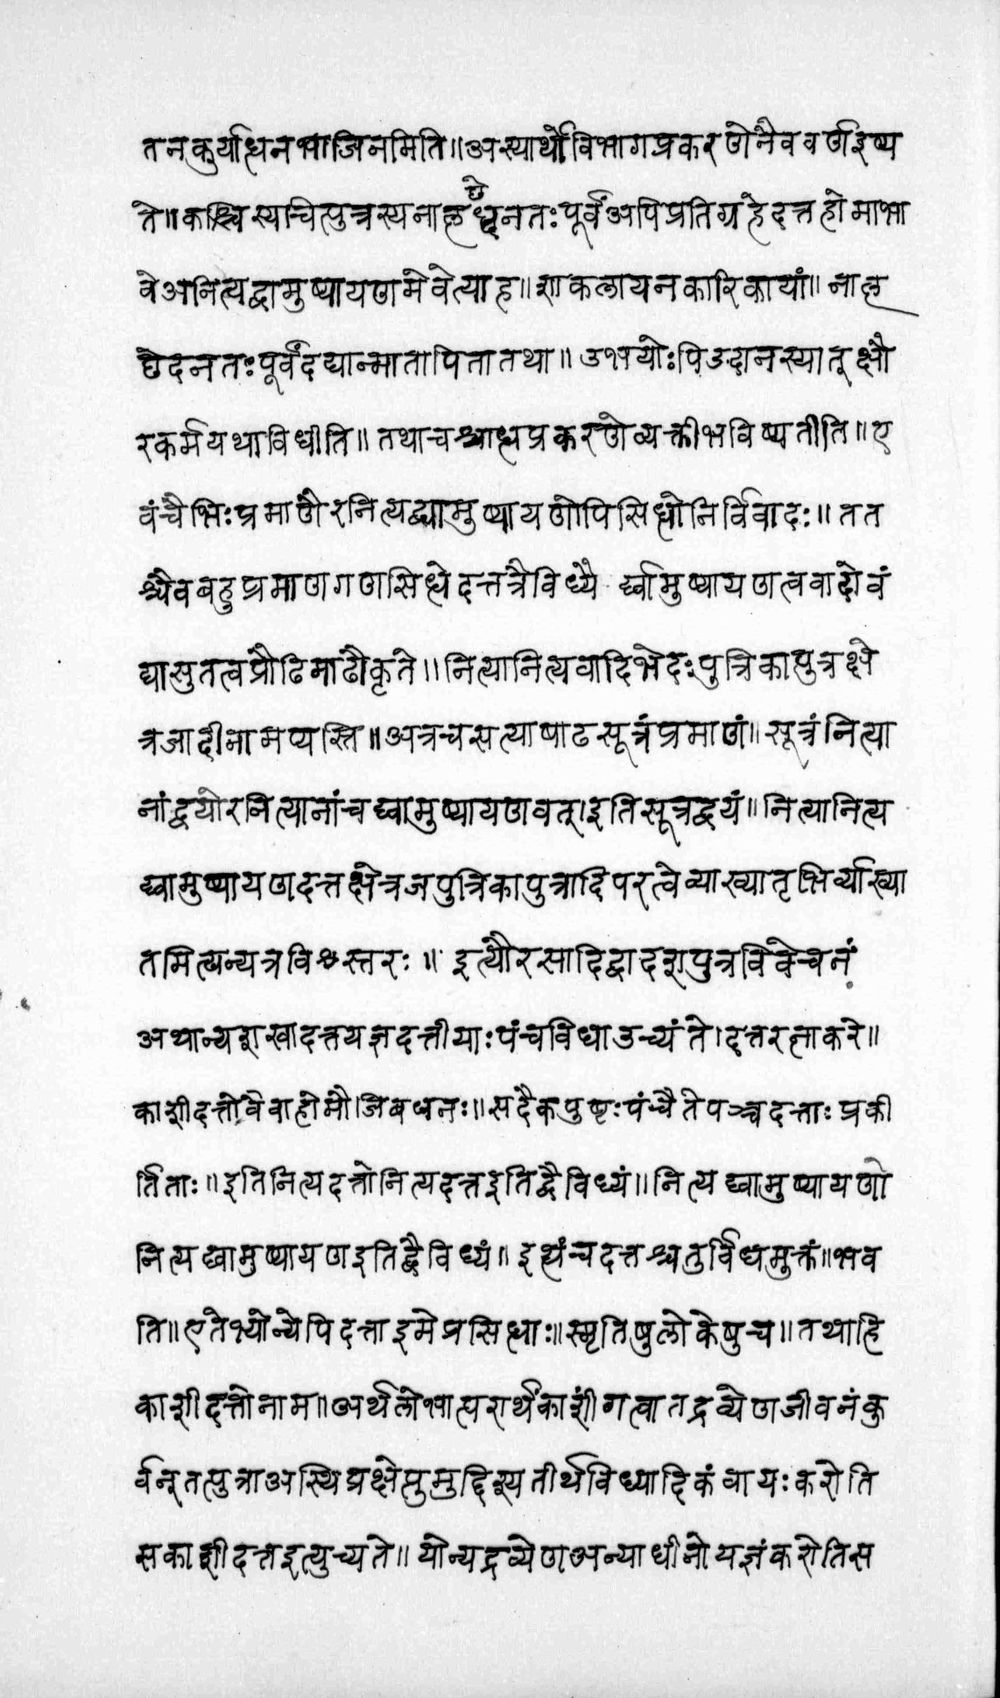 तनकुर्याद्धनभाजिनमिति॥अस्यार्थोविभागप्रकरणेनैववर्णइष्य
ते॥कास्चिस्याचित्पुत्रस्यनाह्नछेद्धनतःपूर्वंअपिप्रतिग्रहेदत्तहोमाभा
वेअनित्यद्वामुष्यायणमेवेत्याह॥शाकलायनकारिकायां॥नाह्न
छेदनतःपूर्वंदद्यान्मातापितातथा॥उभयोःपिंडदानस्यात्क्षौ
रकर्मयथाविधीति॥तथाचश्राद्धप्रकरणेव्यक्तीभविष्यतीति॥ए
वंचैभिःप्रमाणैरनित्यद्व्यामुष्यायणोपिसिद्धोनिर्विवादः॥तत
श्चैवबहुप्रमाणगणसिद्धेदत्तत्रैविध्यै र्ध्वामुष्यायणत्ववादोवं
द्यासुतत्वप्रौढिमाढौकृते॥नित्यानित्यवादिभेदःपुत्रिकापुत्रक्षे
त्रजादीनामप्यस्ति॥अत्रचसत्याषाढसूत्रंप्रमाणं॥सूत्रंनित्या
नांद्वयोरनित्यानांचद्व्यामुष्यायणवत्।इतिसूत्रद्वयं॥नित्यानित्य
द्व्यामुष्यायणदत्तक्षेत्रजपुत्रिकापुत्रादिपरत्वेव्याख्यातृभिर्व्याख्या
तमित्यन्यत्रविश्चस्तरः॥इत्थौरसादिद्वादशपुत्रविवेचनं
अथान्यशाखादत्तयज्ञदत्तीयाःपंचविधाउच्यंते।दत्तरत्नाकरे॥
काशीदत्तोवेवाहोमौजिबधनः॥सदैकपुष्टःपंचैतेपञ्चदत्ताःप्रकी
र्तिताः॥इतिनित्यदत्तोनित्यदत्तइतिद्वैविध्यं॥नित्यद्व्यामुष्यायणो
नित्यद्व्यामुष्यायणइतिद्वैविध्यं॥इत्थंचदत्तश्चतुर्विधमुक्तं॥भव
ति॥एतेभ्योन्येपिदत्ताइमेप्रसिद्धाः॥स्मृतिषुलोकेषुच॥तथाहि
काशीदत्तोनाम॥अर्थलोभात्परार्थंकाशींगत्वातद्रव्येणजीवनंकु
र्वन्तत्पुत्राअस्थिप्रक्षेप्तुमुद्दिश्यतीर्थविध्यादिकंवायःकरोति
सकाशीदत्तइत्युच्यते॥योन्यद्रव्येणअन्याधीनोयज्ञंकरोतिस